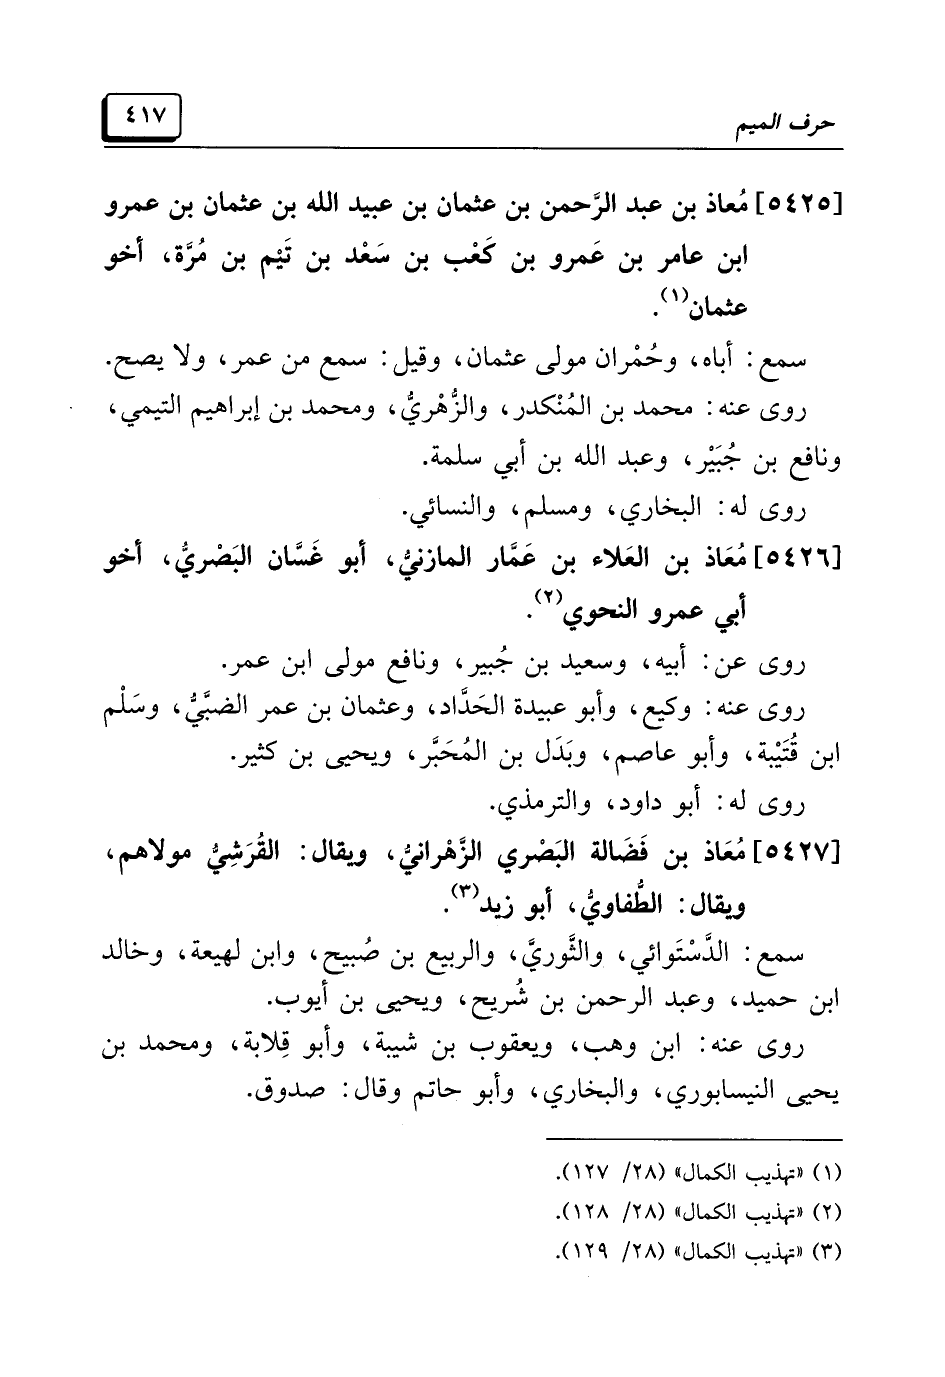 حرف الميم
٤١٧
[٥٤٢٥] مُعاذ بن عبد الرَّحمن بن عثمان بن عبيد الله بن عثمان بن عمرو
ابن عامر بن عَمرو بن كَعْب بن سَعْد بن تَيْم بن مُرَّة، أخو
عثمان(١).
سمع: أباه، وحُمْران مولى عثمان، وقيل: سمع من عمر، ولا يصح.
روى عنه: محمد بن المُنْكدر، والزُّهْريُّ، ومحمد بن إبراهيم التيمي،
ونافع بن جُبَيْر، وعبد الله بن أبي سلمة.
روى له: البخاري، ومسلم، والنسائي.
[٥٤٢٦] مُعَاذ بن العَلاء بن عَمَّار المازنيُّ، أبو غَسَّان البَصْريُّ، أخو
أبي عمرو النحوي(٢).
روى عن: أبيه، وسعيد بن جُبير، ونافع مولى ابن عمر.
روى عنه: وكيع، وأبو عبيدة الحَدَّاد، وعثمان بن عمر الضبَّيُّ، وسَلْم
ابن قُتَيْبة، وأبو عاصم، وبَدَل بن المُحَبَّر، ويحيى بن كثير.
روى له: أبو داود، والترمذي.
[٥٤٢٧] مُعَاذ بن فَضَالة البَصْري الزَّهْرانيُّ، ويقال: القُرَشِيُّ مولاهم،
ويقال: الطُّفاويُّ، أبو زيد(٣).
سمع: الدَّسْتَوائي، والثَّوريَّ، والربيع بن صُبيح، وابن لهيعة، وخالد
ابن حميد، وعبد الرحمن بن شُريح، ويحيى بن أيوب.
روى عنه: ابن وهب، ويعقوب بن شيبة، وأبو قِلابة، ومحمد بن
يحيى النيسابوري، والبخاري، وأبو حاتم وقال: صدوق.
(١) «تهذيب الكمال» (٢٨/ ١٢٧).
(٢) «تهذيب الكمال» (٢٨/ ١٢٨).
(٣) «تهذيب الكمال» (٢٨/ ١٢٩).